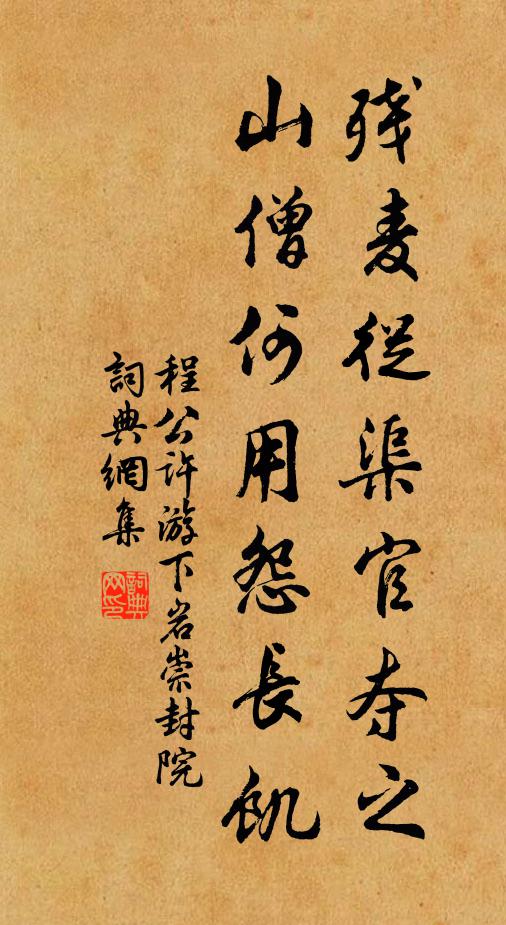 残麦從渠官夺之
山僧何用怨長飢
程公许游下岩崇封院
詞典網集
詞典网印